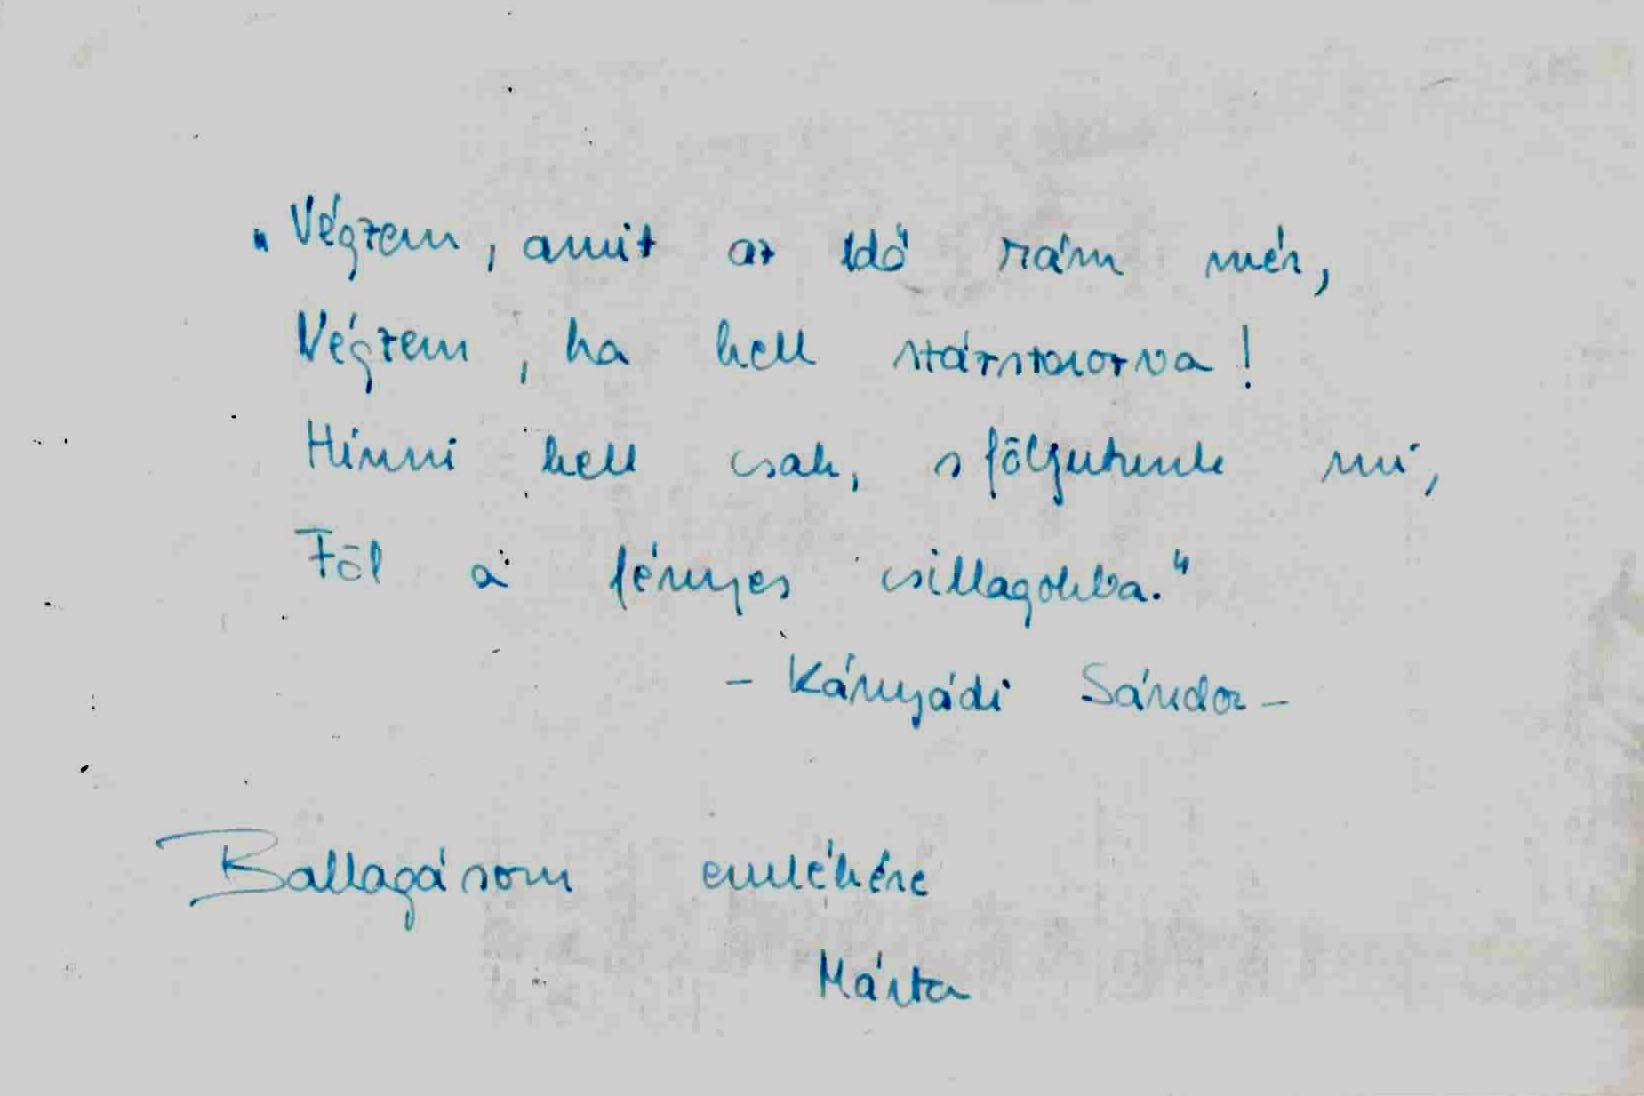 "Végzem, amit az Idő rám mér,
Végzem, ha kell százszorozva!
Hinni kell csak, s följutunk mi,
Föl a fényes csillagokba."
- Kányádi Sándor -
Ballagásom emlékére
Márta